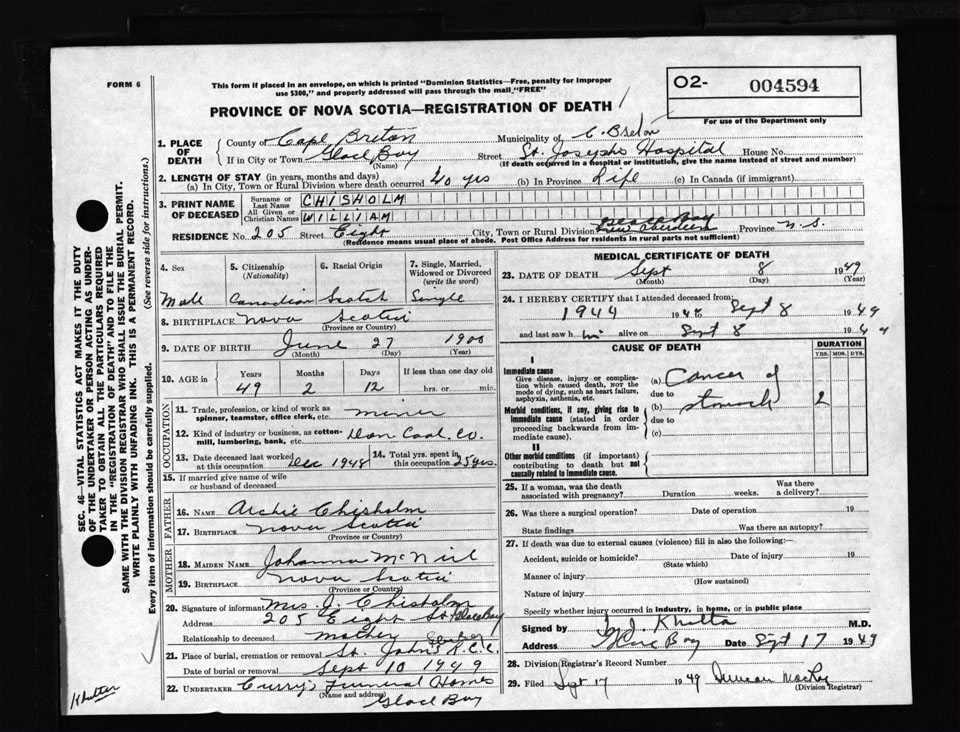 FORM 6
This form if placed in an envelope, on which is printed "Dominion Statistics—Free, penalty for improper
use $300," and properly addressed will pass through the mail "FREE"
O2- 004594
For use of the Department only
PROVINCE OF NOVA SCOTIA—REGISTRATION OF DEATH
1. PLACE OF DEATH County of Cape Breton Municipality of C. Breton
If in City or Town Glace Bay Street St. Josephs Hospital House No.
(Name) (If death occurred in a hospital or institution, give the name instead of street and number)
2. LENGTH OF STAY (in years, months and days)
(a) In City, Town or Rural Division where death occurred 40 yrs (b) In Province Life (c) In Canada (if immigrant)
3. PRINT NAME OF DECEASED Surname or Last Name CHISHOLM
All Given or Christian Names WILLIAM
RESIDENCE No. 205 Street Eight City, Town or Rural Division Glace Bay New Aberdeen Province N.S.
(Residence means usual place of abode. Post Office Address for residents in rural parts not sufficient)
4. Sex 5. Citizenship (Nationality) 6. Racial Origin 7. Single, Married, Widowed or Divorced (write the word)
Male Canadian Scotch Single
8. BIRTHPLACE Nova Scotia
(Province or Country)
9. DATE OF BIRTH June 27 1900
(Month) (Day) (Year)
10. AGE in Years Months Days If less than one day old
49 2 12 hrs. or min.
OCCUPATION
11. Trade, profession, or kind of work as spinner, teamster, office clerk, etc. miner
12. Kind of industry or business, as cotton-mill, lumbering, bank, etc. Dom Coal Co.
13. Date deceased last worked at this occupation Dec 1948 14. Total yrs. spent in this occupation 25 yrs.
15. If married give name of wife or husband of deceased
FATHER
16. Name Archie Chisholm
17. Birthplace Nova Scotia
(Province or Country)
MOTHER
18. Maiden Name Johanna McNeil
19. Birthplace Nova Scotia
(Province or Country)
20. Signature of informant Mrs. J. Chisholm
Address 205 Eight St Glace Bay
Relationship to deceased mother
21. Place of burial, cremation or removal St. John's R.C.C.
Date of burial or removal Sept 10 1949
22. UNDERTAKER Curry's Funeral Homes
(Name and address)
Glace Bay
MEDICAL CERTIFICATE OF DEATH
23. DATE OF DEATH Sept 8 1949
(Month) (Day) (Year)
24. I HEREBY CERTIFY that I attended deceased from:
1944 194 to Sept 8 1949
and last saw h im alive on Sept 8 1949
CAUSE OF DEATH DURATION
YRS. MOS. DYS.
I
Immediate cause
Give disease, injury or complication which caused death, NOT the mode of dying, such as heart failure, asphyxia, asthenia, etc.
(a) Cancer of
due to
Morbid conditions, if any, giving rise to immediate cause (stated in order proceeding backwards from immediate cause).
(b) stomach 2
due to
(c)
II
Other morbid conditions (if important) contributing to death but not causally related to immediate cause.
25. If a woman, was the death associated with pregnancy? Duration weeks. Was there a delivery?
26. Was there a surgical operation? Date of operation 19
State findings Was there an autopsy?
27. If death was due to external causes (violence) fill in also the following:
Accident, suicide or homicide? Date of injury 19
(State which)
Manner of injury
(How sustained)
Nature of injury
Specify whether injury occurred in industry, in home, or in public place
Signed by M.D.
Glace Bay Date Sept 17 1949
28. Division Registrar's Record Number
29. Filed Sept 17 1949 Duncan MacKay
(Division Registrar)
SEC. 46—VITAL STATISTICS ACT MAKES IT THE DUTY
OF THE UNDERTAKER OR PERSON ACTING AS UNDER-
TAKER TO OBTAIN ALL THE PARTICULARS REQUIRED
IN THE "REGISTRATION OF DEATH" AND TO FILE THE
SAME WITH THE DIVISION REGISTRAR WHO SHALL ISSUE THE BURIAL PERMIT.
WRITE PLAINLY WITH UNFADING INK. THIS IS A PERMANENT RECORD.
Every item of information should be carefully supplied. (See reverse side for instructions.)